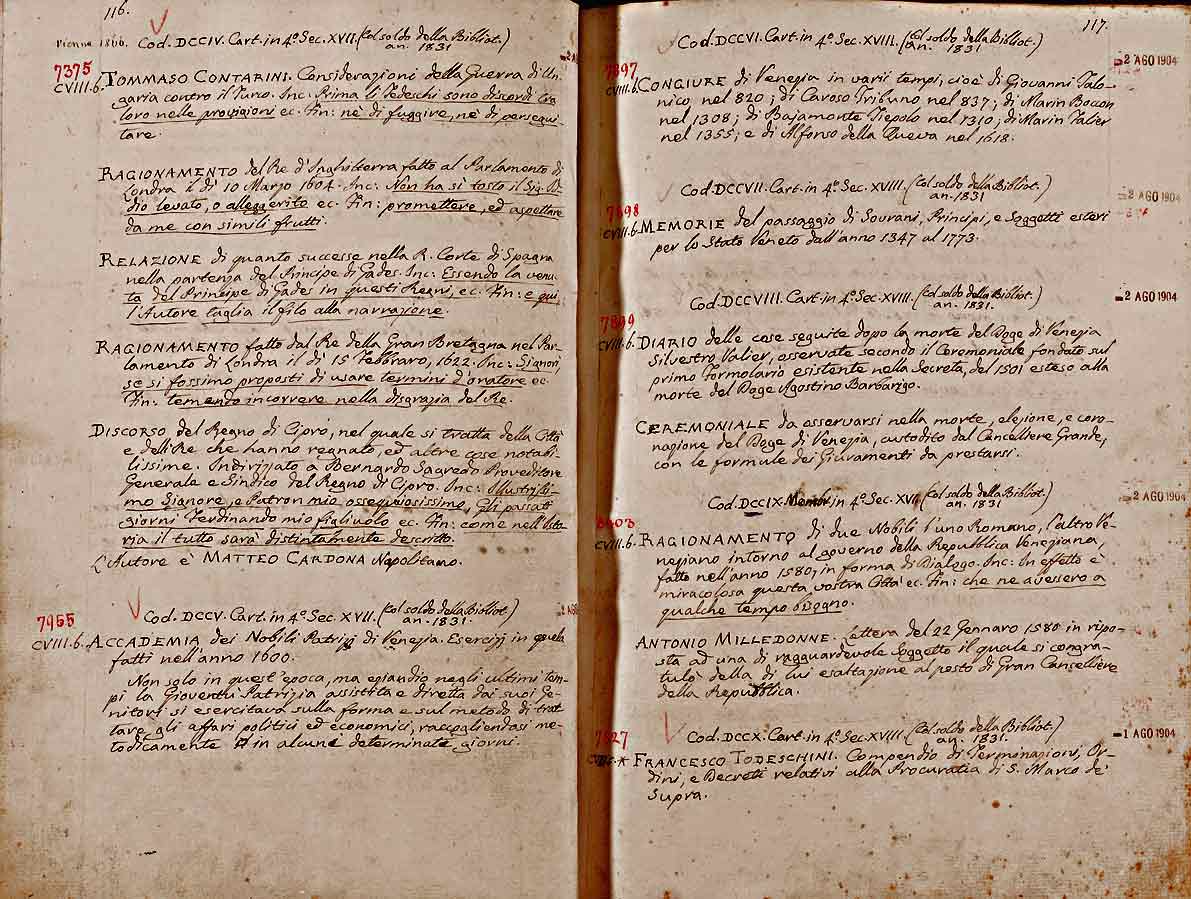 116.
Vienna 1866. Cod. DCCIV. Cart. in 4º. Sec. XVII. (Col soldo della Bibliot.)
an. 1831
7375
CVIII.6. TOMMASO CONTARINI. Considerazioni della Guerra di Un-
garia contro il Turco. Inc. Prima li Tedeschi sono discordi tra
loro nelle provigioni ec. Fin: nè di fuggire, nè di persegui-
tare.
RAGIONAMENTO del Re d'Inghilterra fatto al Parlamento di
Londra il dì 10 Marzo 1604. Inc: Non ha sì tosto il Sig. Id-
dio levato, o alleggerito ec. Fin: promettere, ed aspettare
da me con simili frutti.
RELAZIONE di quanto successe nella R. Corte di Spagna
nella partenza del Principe di Gades. Inc: Essendo la venu-
ta del Principe di Gades in questi Regni, ec. Fin: e qui
l'Autore taglia il filo alla narrazione.
RAGIONAMENTO fatto dal Re della Gran Bretagna nel Par-
lamento di Londra il dì 15 Febbraro, 1622. Inc: Signori,
se si fossimo proposti di usare termini d'oratore ec.
Fin: temendo incorrere nella disgrazia del Re.
DISCORSO del Regno di Cipro, nel quale si tratta della Città
e delli Re che hanno regnato, ed altre cose notabi-
lissime. Indirizzato a Bernardo Sagredo Proveditore
Generale e Sindico del Regno di Cipro. Inc: Illustrissi-
mo Signore, e Patron mio ossequiosissimo, Gli passati
giorni Ferdinando mio figlivolo ec. Fin: come nell'Isto-
ria il tutto sarà distintamente descritto.
L'Autore è MATTEO CARDONA Napolitano.
Cod. DCCV. Cart. in 4º. Sec. XVII. (Col soldo della Bibliot.)
an. 1831.
7955
CVIII.6. ACCADEMIA dei Nobili Patrizj di Venezia. Esercizj in quela
fatti nell'anno 1600.
Non solo in quest'epoca, ma eziandio negli ultimi tem-
pi la Gioventù Patrizia assistita e diretta dai suoi Ge-
nitori si esercitava sulla forma e sul metodo di trat-
tare gli affari politici ed economici, raccogliendosi me-
todicamente in alcune determinate giorni.
117.
Cod. DCCVI. Cart. in 4º. Sec. XVIII. (Col soldo della Bibliot.)
an. 1831
2 AGO 1904
7897
CVIII.6. CONGIURE di Venezia in varii tempi, cioè di Giovanni Talo-
nico nel 820; di Caroso Tribuno nel 837; di Marin Bocon
nel 1308; di Bajamonte Tiepolo nel 1310; di Marin Falier
nel 1355; e di Alfonso della Queva nel 1618.
Cod. DCCVII. Cart. in 4º. Sec. XVIII. (Col soldo della Bibliot.)
an. 1831
2 AGO 1904
7898
CVIII.6. MEMORIE del passaggio di Sovrani, Principi, e Soggetti esteri
per lo Stato Veneto dall'anno 1347 al 1773.
Cod. DCCVIII. Cart. in 4º. Sec. XVIII. (Col soldo della Bibliot.)
an. 1831.
2 AGO 1904
7899
CVIII.6. DIARIO delle cose seguite dopo la morte del Doge di Venezia
Silvestro Valier, osservate secondo il Ceremoniale fondato sul
primo Formolario esistente nella Secreta, del 1501 esteso alla
morte del Doge Agostino Barbarigo.
CEREMONIALE da osservarsi nella morte, elezione, e coro-
nazione del Doge di Venezia, custodito dal Cancelliere Grande,
con le formule dei Giuramenti da prestarsi.
Cod. DCCIX. in 4º. Sec. XVII. (Col soldo della Bibliot.)
an. 1831
2 AGO 1904
CVIII.6. RAGIONAMENTO di due Nobili l'uno Romano, l'altro Ve-
neziano intorno al governo della Repubblica Veneziana,
fatto nell'anno 1580, in forma di Dialogo. Inc: In effetto è
miracolosa questa vostra Città ec. Fin: che ne avessero a
qualche tempo bisogno.
ANTONIO MILLEDONNE. Lettera del 22 Gennaro 1580 in rispo-
sta ad una di ragguardevole Soggetto il quale si congra-
tulò della di lui esaltazione al posto di Gran Cancelliere
della Repubblica.
Cod. DCCX. Cart. in 4º. Sec. XVIII. (Col soldo della Bibliot.)
an. 1831.
1 AGO 1904
7827
FRANCESCO TODESCHINI. Compendio di Terminazioni, Or-
dini, e Decreti relativi alla Procuratia di S. Marco de
Supra.